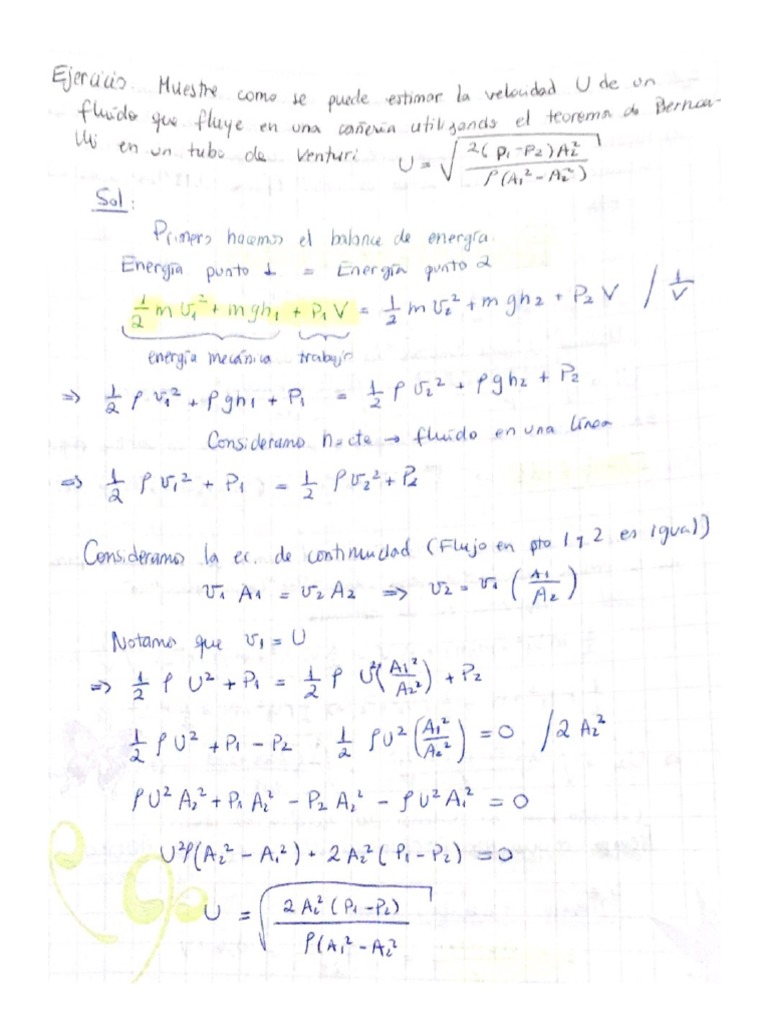 Ejercicio. Muestre como se puede estimar la velocidad U de un
fluido que fluye en una cañeria utilizando el teorema de Bernou-
lli en un tubo de Venturi. U = √(2(P₁-P₂)A₂² / ρ(A₁²-A₂²))
Sol:
Primero hacemos el balance de energía.
Energía punto 1 = Energía punto 2
1/2 m v₁² + mgh₁ + P₁V = 1/2 m v₂² + mgh₂ + P₂V / 1/V
energía mecánica trabajo
⇒ 1/2 ρ v₁² + ρgh₁ + P₁ = 1/2 ρ v₂² + ρgh₂ + P₂
Consideramo h=cte → fluido en una línea
⇒ 1/2 ρ v₁² + P₁ = 1/2 ρ v₂² + P₂
Consideramos la ec. de continuidad (Flujo en pto 1 y 2 es igual))
v₁ A₁ = v₂ A₂ ⇒ v₂ = v₁ (A₁/A₂)
Notamos que v₁ = U
⇒ 1/2 ρ U² + P₁ = 1/2 ρ U²(A₁²/A₂²) + P₂
1/2 ρU² + P₁ - P₂ 1/2 ρU² (A₁²/A₂²) = 0 /2 A₂²
ρU² A₂² + P₁ A₂² - P₂ A₂² - ρU² A₁² = 0
U²ρ(A₂² - A₁²) + 2A₂²(P₁ - P₂) = 0
U = √(2A₂²(P₁-P₂) / ρ(A₁² - A₂²